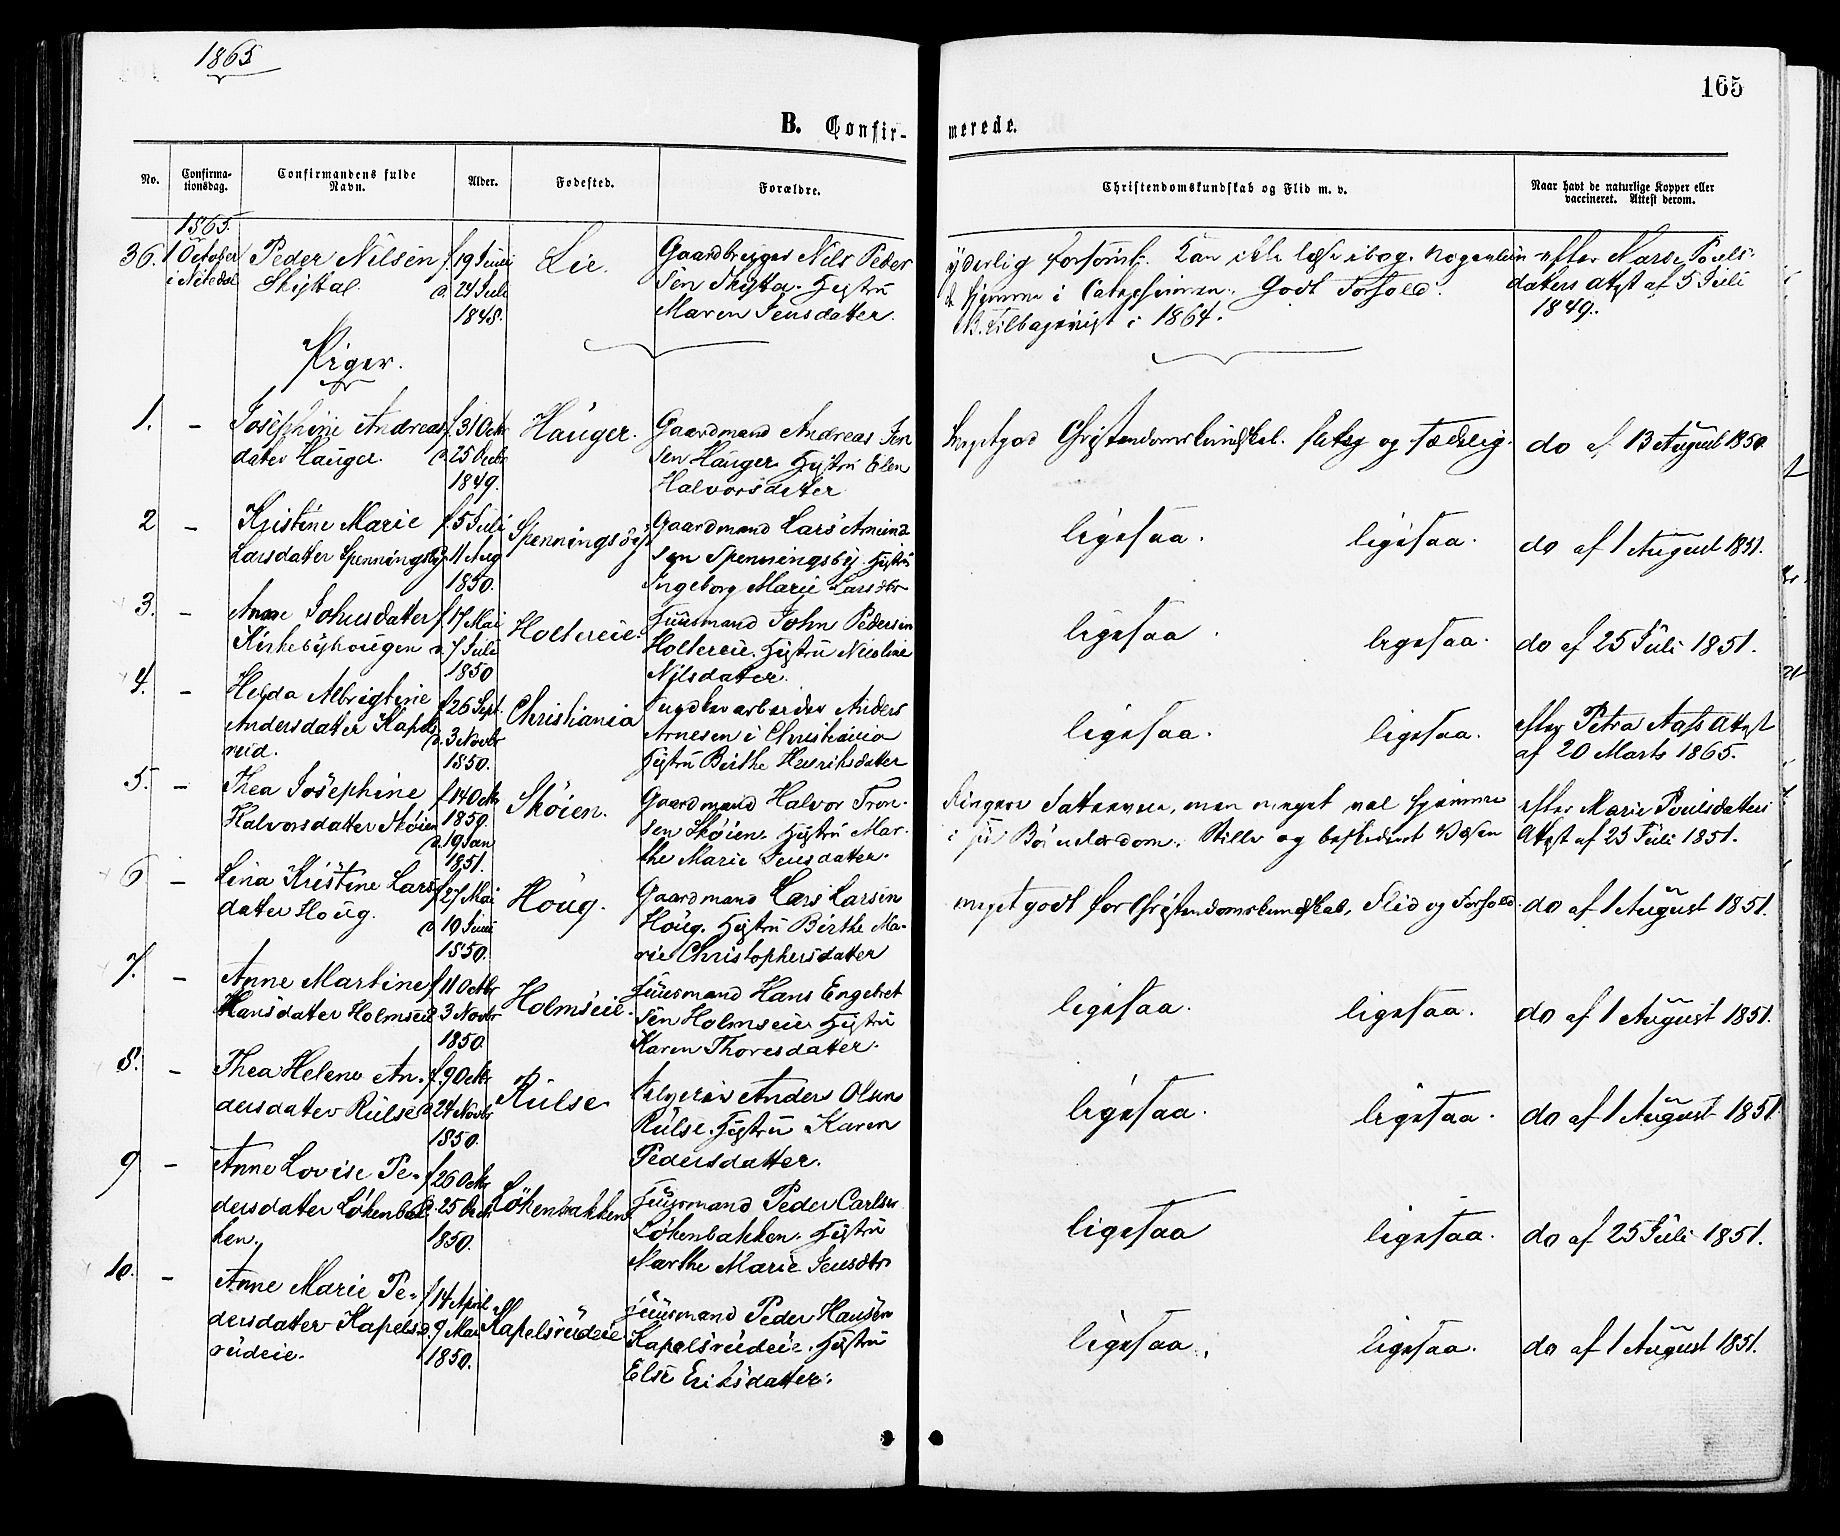 1865
165
B. Confir-
merede.
No.
Confirma-
tionsdag.
Confirmandens fulde
Navn.
Alder.
Fødested.
Forældre.
Christendomskundskab og Flid m. v.
Naar havt de naturlige Kopper eller
vaccineret. Attest derom.
1865.
36. 1 October Peder Nilsen f. 19 Juni Lie. Nils Peder
d. 24 Juli sen
1848. Maren Jensdatter.
Kan ikke læse i bog.
i Catechismen. Godt Forhold.
i 1864.
datters Attest af 5 Juli
1849.
Piger.
1. - Josephine Andreas f. 31 Octbr Hauger. Gaardmand Andreas Jen
datter Hauger. d. 25 Decbr sen Hauger. Hustru Elen
1849. Halvorsdatter
Meget god Christendomskundskab. flittig og sædelig. do af 13 August 1850.
2 - Kristine Marie f. 5 Juli Spenningsby Gaardmand Lars Amund
Larsdatter Spenningsby d. 11 Aug sen Spenningsby. Hustru
1850. Ingeborg Marie Larsdtr
ligesaa. ligesaa. do af 1 August 1851.
3. - Anne Johnsdatter f. 17 Mai Holtereie. Huusmand John Pedersen
Kirkebyhougen d. 7 Juli Holtereie. Hustru Nicoline
1850 Nilsdatter.
ligesaa. ligesaa. do af 25 Juli 1851.
4. - Helda Albrigtine f. 26 Sept. Christiania Anders
Andersdatter Kapels d. 3 Novbr Arnesen i Christiania
rud. 1850. Hustru Birthe Henriksdatter
ligesaa. ligesaa. efter Petra Aass Attest
af 20 Marts 1865.
5. - Thea Josephine f. 14 Octbr Skøien. Gaardmand Halvor Tron-
Halvorsdatter Skøien 1850. sen Skøien. Hustru Mar-
d. 19 Jan the Marie Jensdatter.
1851.
Ringere Fatteevne, men meget vel hjemme efter Marie Poulsdatters
i sin Børnelærdom. Stille og beskedent Væsen Attest af 25 Juli 1851.
6 - Lina Kristine Lars f. 27 Mai Houg. Gaardmand Lars Larsen
datter Houg. d. 19 Juni Houg. Hustru Birthe Ma-
1850. rie Christophersdatter
meget godt for Christendomskundskab, Flid og Forhold. do af 1 August 1851.
7. - Anne Martine f. 11 Octbr Holmseie. Huusmand Hans Engebret
Hansdatter Holmseie d. 3 Novbr sen Holmseie. Hustru
1850. Karen Thoresdatter.
ligesaa. ligesaa. do af 1 August 1851.
8. - Thea Helene An- f. 9 Octbr Rulse Anders Olsen
dersdatter Rulse d. 24 Novbr Rulse. Hustru Karen
1850. Pedersdatter.
ligesaa. ligesaa. do af 1 August 1851
9 - Anne Lovise Pe- f. 26 Octbr Løkenbakken Huusmand Peder Carlsen
dersdatter Løkenbak d. 25 Decbr Løkenbakken. Hustru
ken. 1850. Marthe Marie Jensdtr
ligesaa ligesaa. do af 25 Juli 1851.
10. - Anne Marie Pe- f. 14 April Kapelsrudeie Huusmand Peder Hansen
dersdatter Kapels- d. 9 Mai Kapelsrudeie. Hustru
rudeie. 1850. Else Eriksdatter.
ligesaa. ligesaa. do af 1 August 1851.